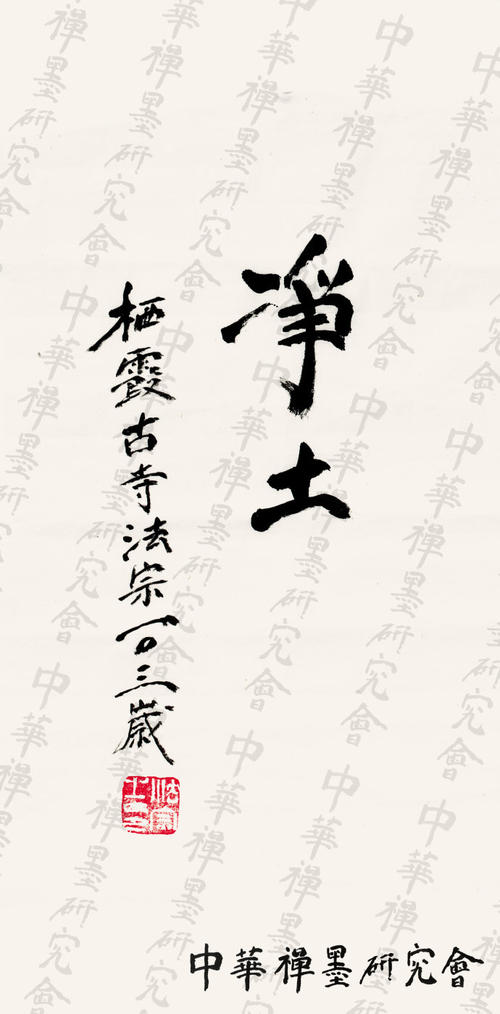 淨土
栖霞古寺法宗一〇三歲
中華禪墨研究會